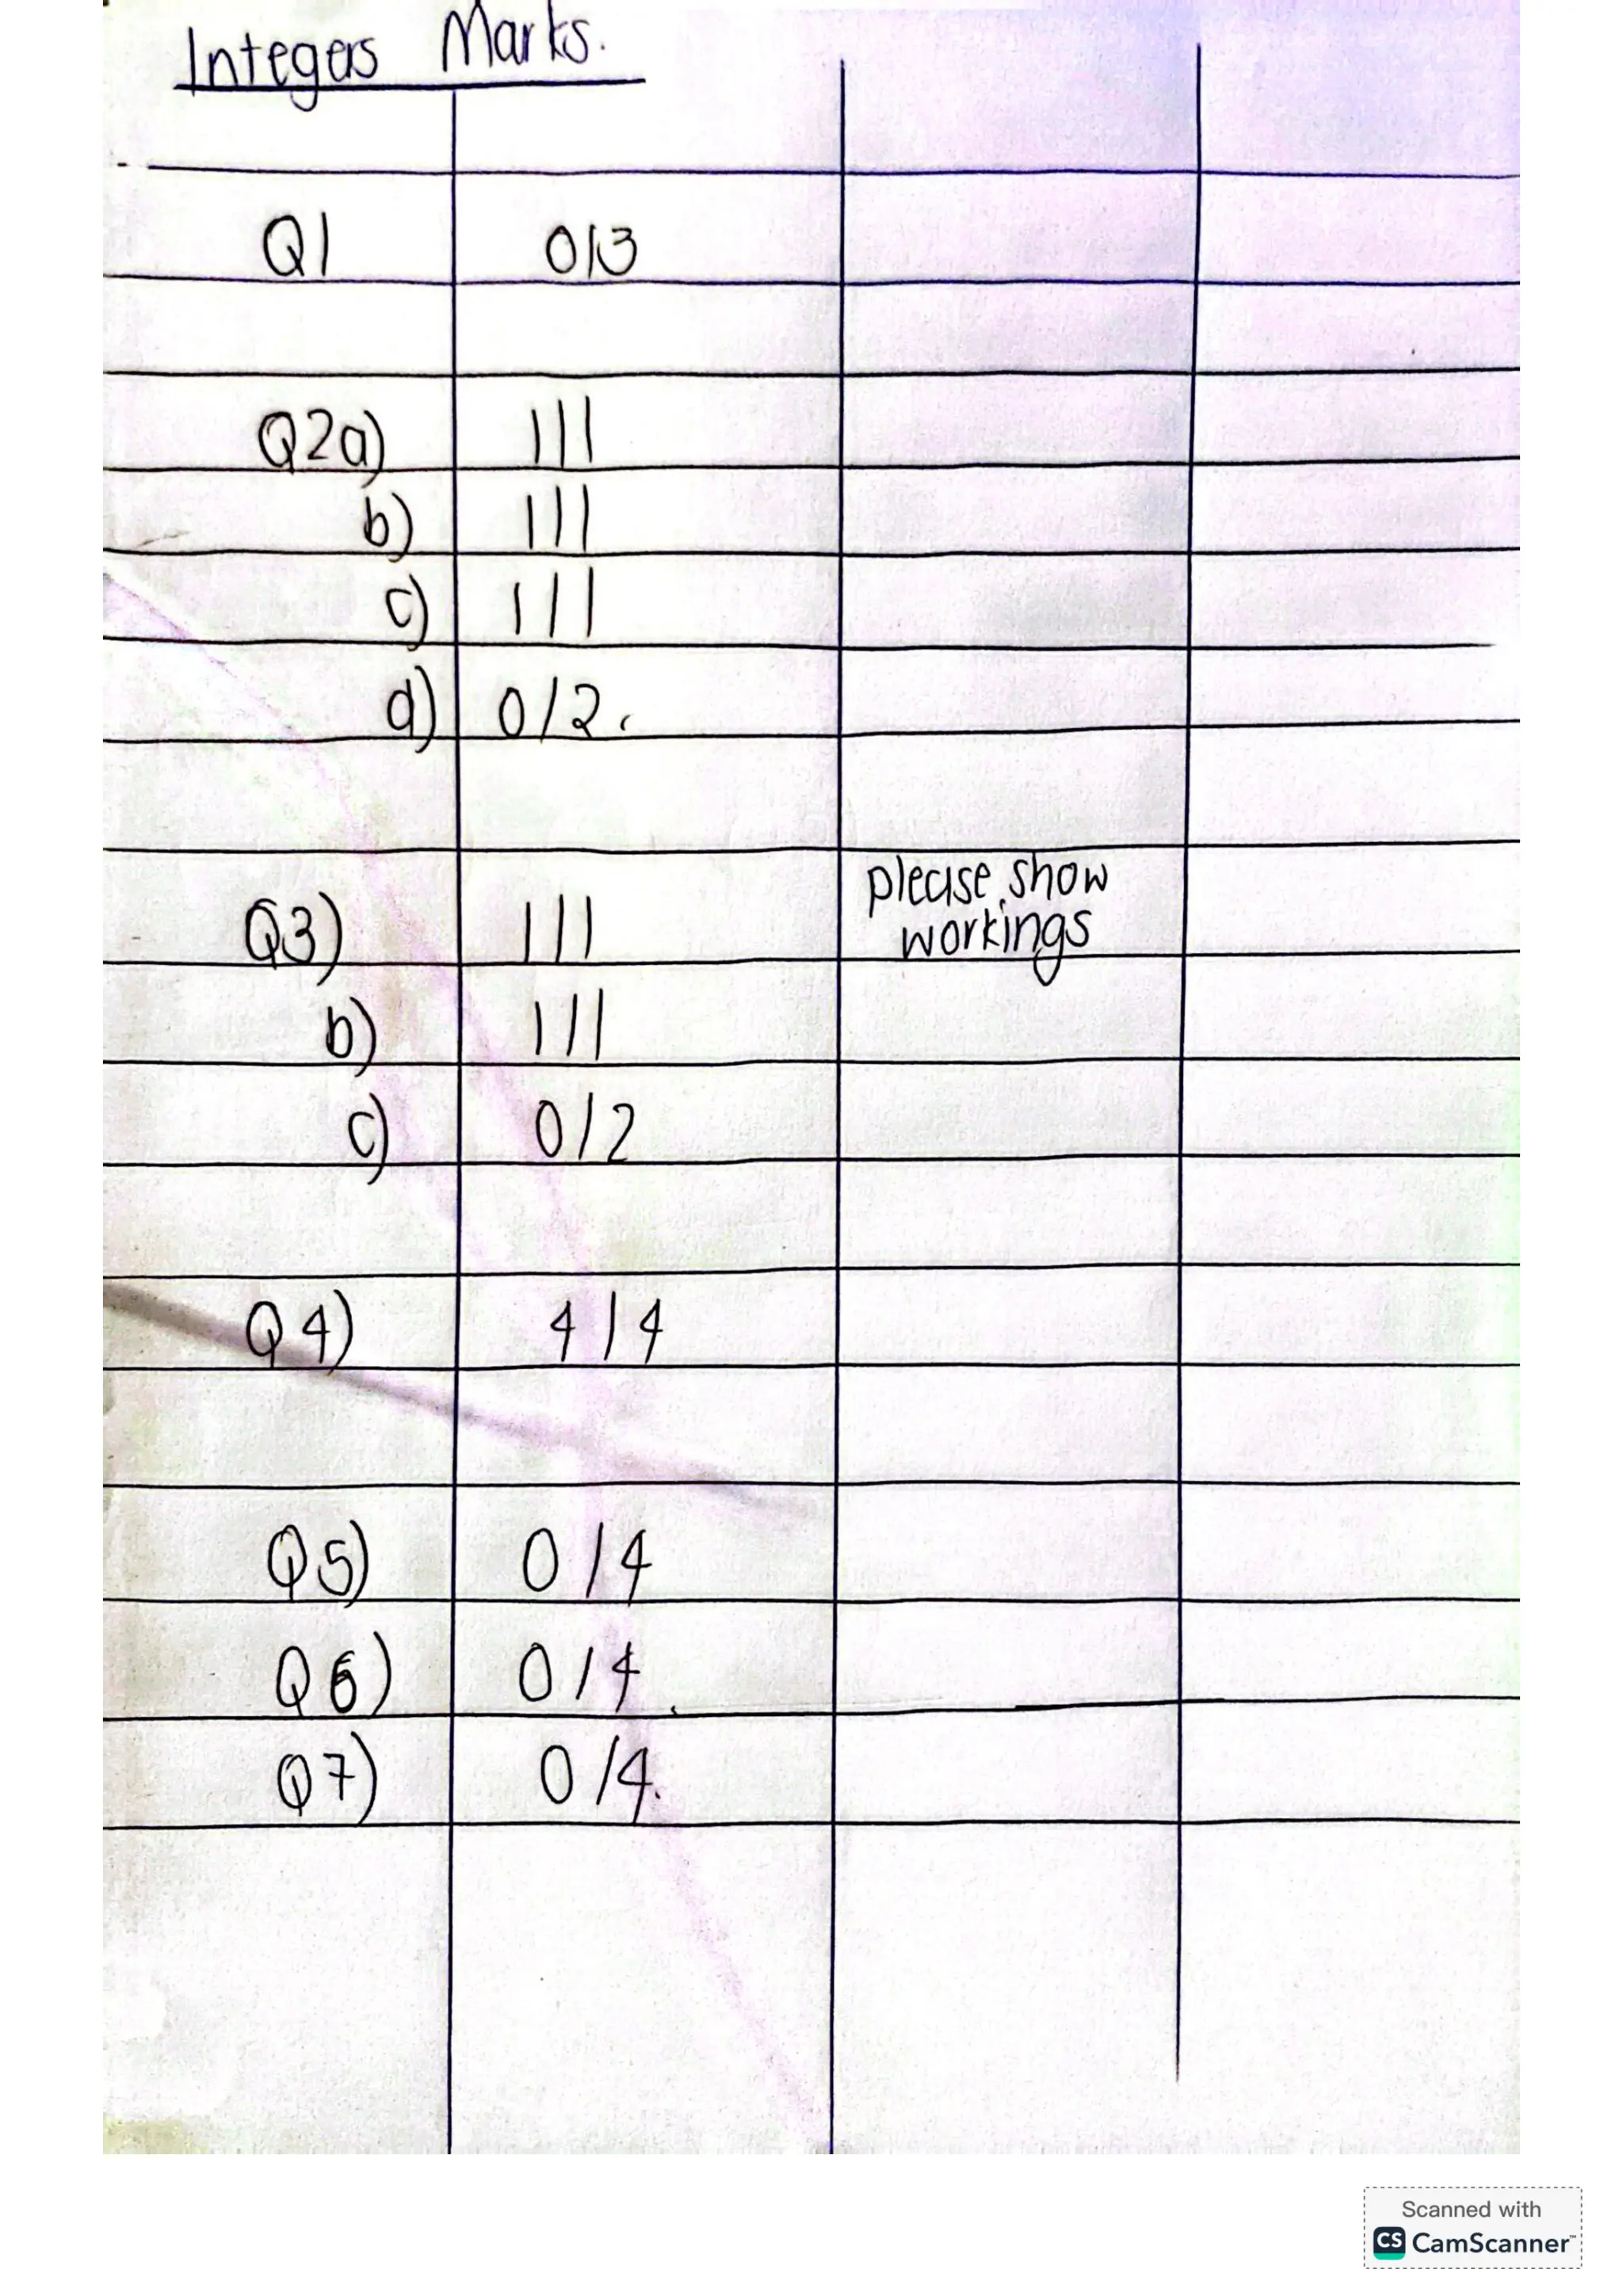 Integers Marks.
Q1 0/3
Q2a) 1/1
b) 1/1
c) 1/1
d) 0/2.
please show
Q3) 1/1 workings
b) 1/1
c) 0/2
Q4) 4/4
Q5) 0/4
Q6) 0/4
Q7) 0/4.
Scanned with
CS CamScanner™